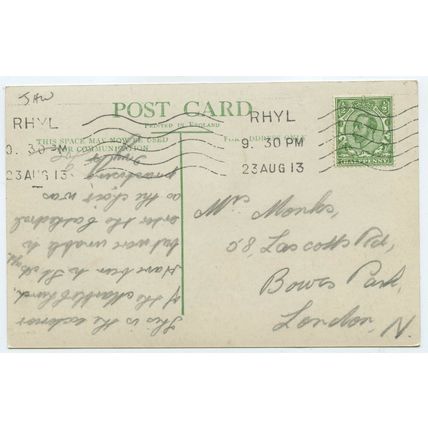 JAW
POST CARD
PRINTED IN ENGLAND
THIS SPACE MAY NOW BE USED
FOR COMMUNICATION
FOR ADDRESS ONLY
RHYL
9. 30 PM
23 AUG 13
RHYL
9. 30 PM
23 AUG 13
HALFPENNY
Mrs Monks,
58, Lascotts Rd,
Bowes Park,
London, N.
This is the exterior
of the Marble Church,
Have been to St
but were unable to
enter the Cathedral
as the choir was
practising